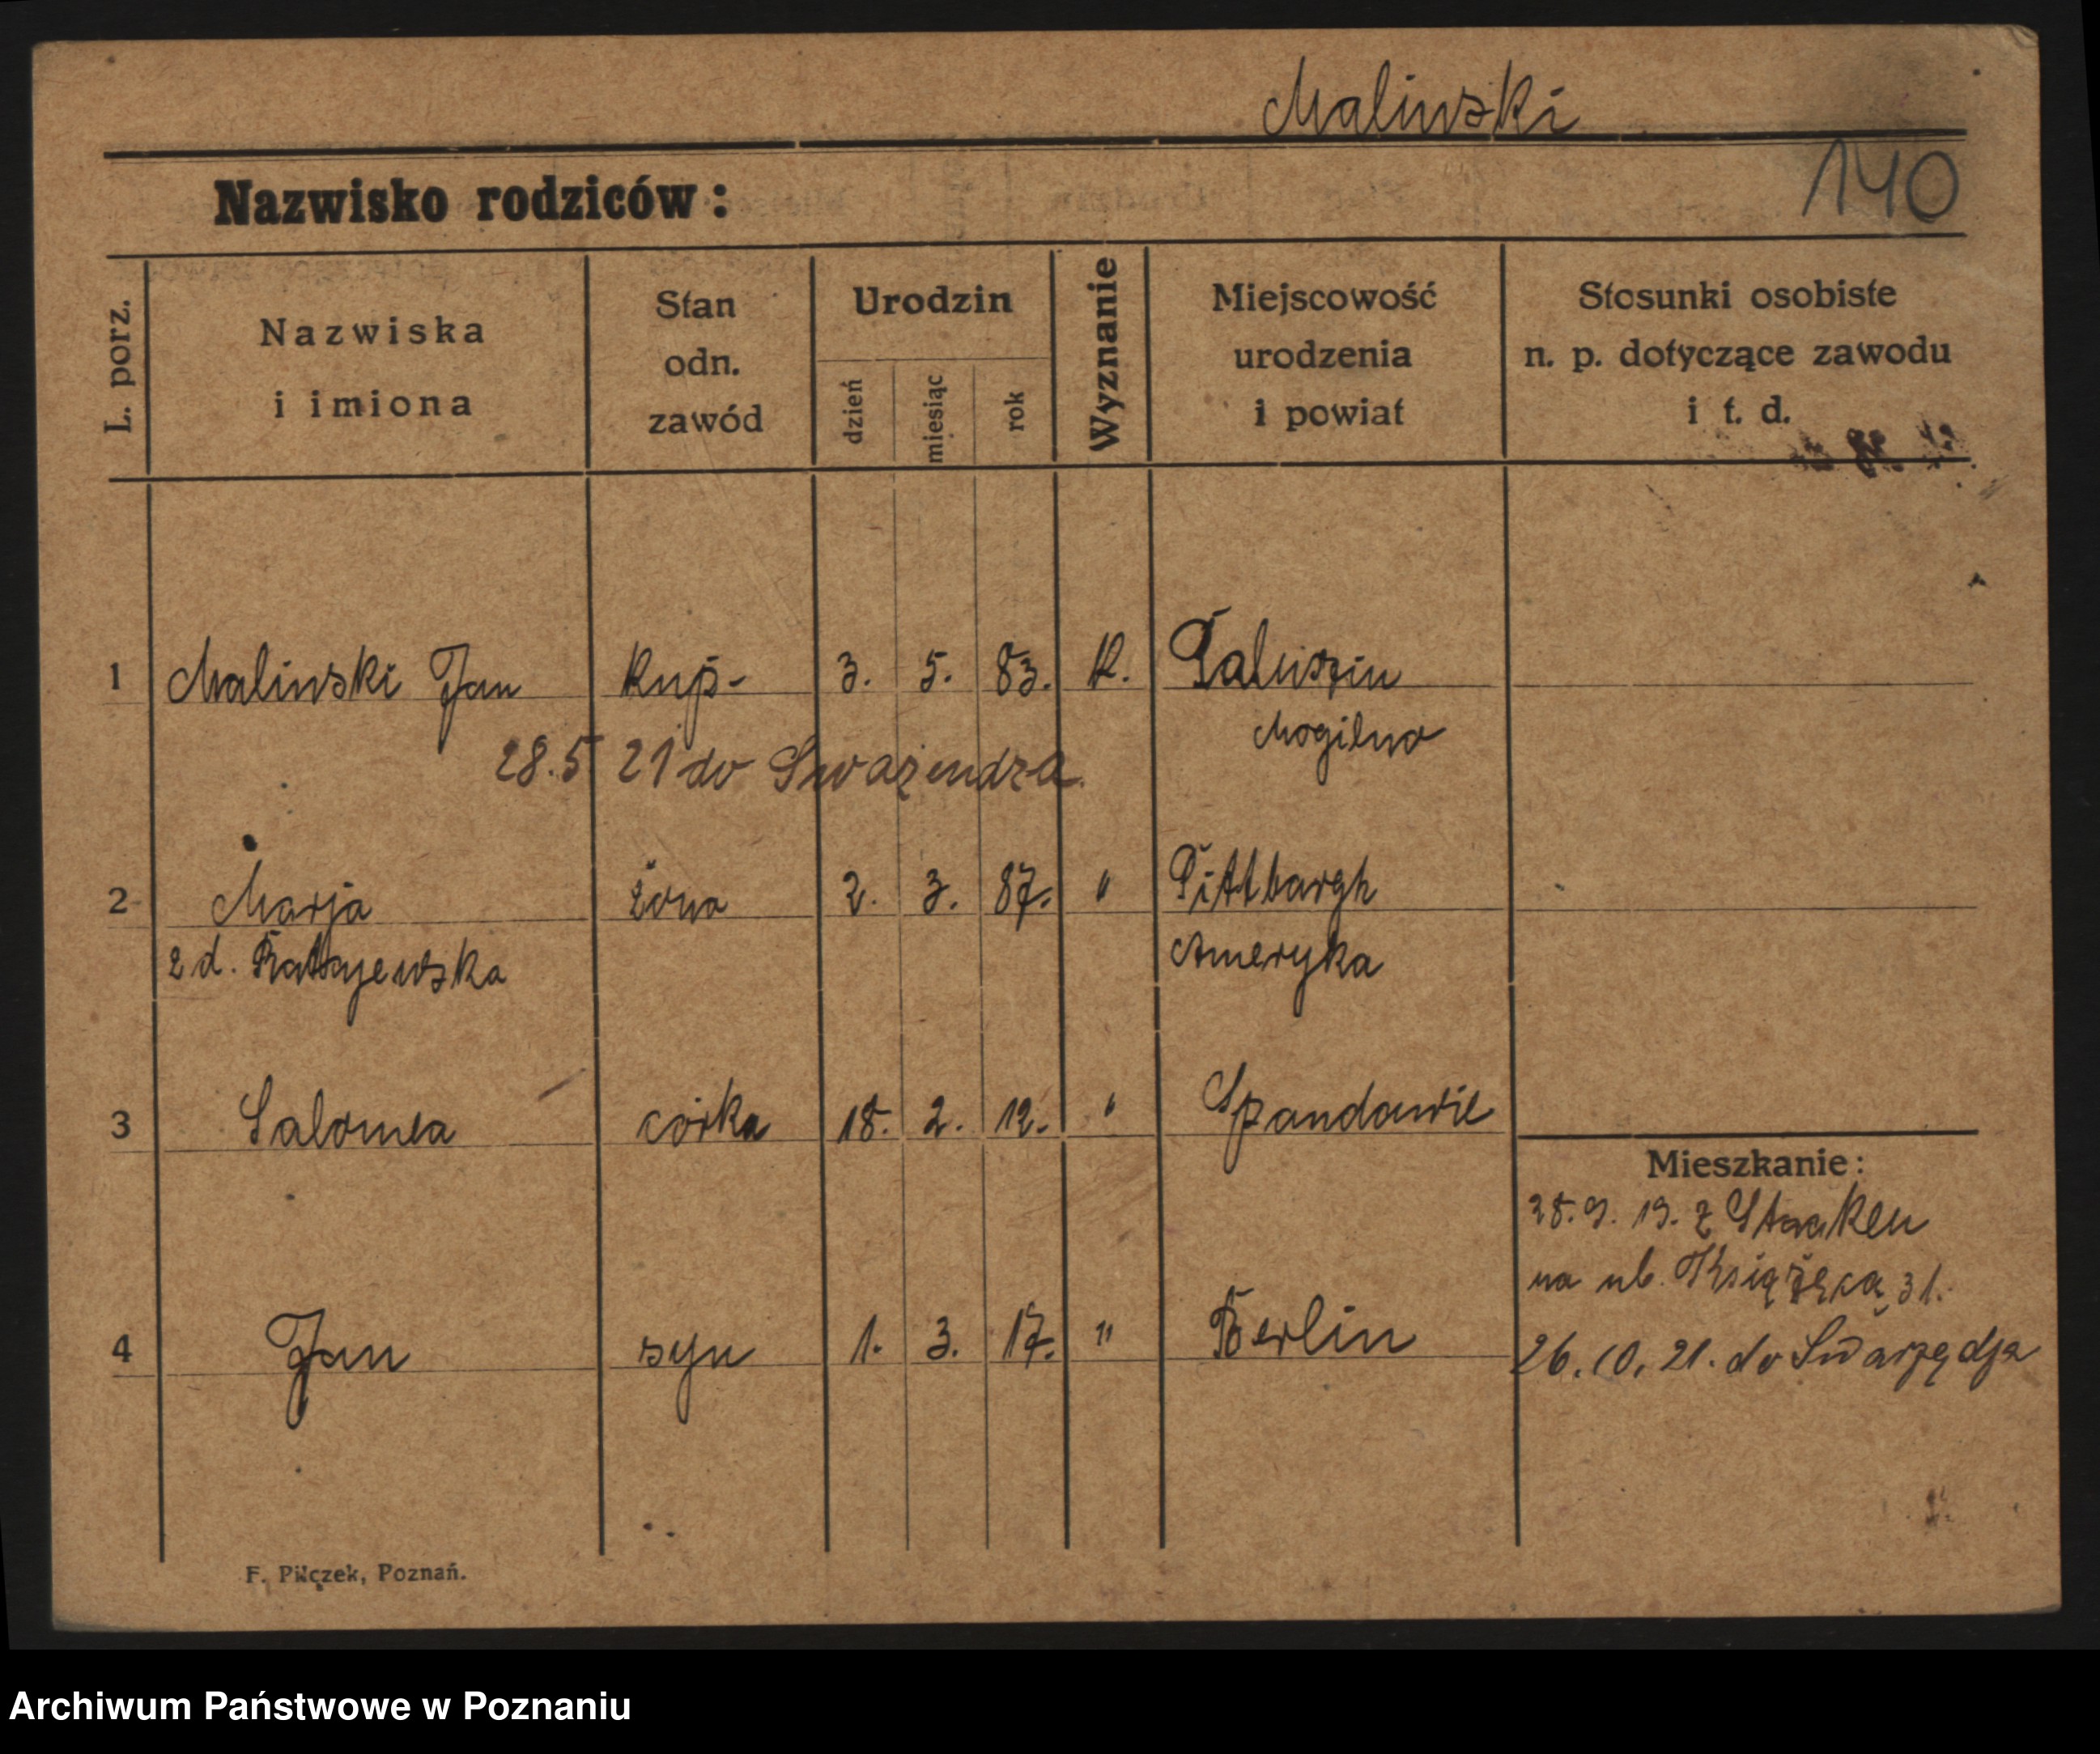 Malinski
Nazwisko rodziców:
140
L. porz.
Nazwiska
i imiona
Stan
odn.
zawód
Urodzin
dzień
miesiąc
rok
Wyznanie
Miejscowość
urodzenia
i powiat
Stosunki osobiste
n. p. dotyczące zawodu
i t. d.
1 Malinski Jan kup- 3. 5. 83. k.
Mogilno
28.5 21 do
2 Marja żona 2. 3. 87. " Pittbargh
zd. Ratajewska Ameryka
3 Salomea córka 18. 2. 12. " Spandawie
Mieszkanie:
28.9.19. z Staaken
na ul. Książęcą 31.
4 Jan syn 1. 3. 17. " Berlin
26.10.21. do Swarzędza
F. Pilczek, Poznań.
Archiwum Państwowe w Poznaniu